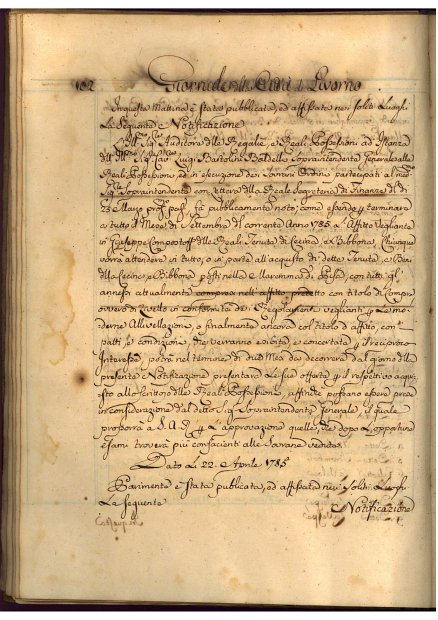 102 Giornale della Città di Livorno
In questa Mattina è stata pubblicata, ed affissata nei soliti Luoghi
La Seguente Notificazione
L'Ill.mo Sig.re Auditore delle Regalie, e Reali Possessioni ad Istanza
dell' Ill.mo Sig.re Cav.re Luigi Bartolini Baldelli Sopraintendente Generale alle
Reali Possessioni, ed in esecuzione dei Sovrani Ordini partecipati al med.mo
Sig.re Sopraintendente con lettera della Reale Segreteria di Finanze del dì
23 Marzo pross. pass. fà pubblicamente noto; come essendo p terminare
a tutto il Mese di Settembre del corrente Anno 1785. l'Affitto Vegliante
in Giuseppe Compostoff delle Reali Tenute di Cecina, e Bibbona, Chiunque
vorrà attendere in tutto, o in parte all'acquisto di dette Tenute, e Beni
della Cecina, e Bibbona posti nella Maremma di Pisa, con tutti gli
annessi attualmente compresi nell'affitto predetto con titolo di Compra
ovvero di Livello in conformità dei Regolamenti veglianti p le mo-
derne Allivellazioni, o finalmente ancora col titolo d'affitto, con
patti, e condizioni, che verranno esibite, e concertate p il reciproco
Interesse, potrà nel termine di due Mesi da decorrere dal giorno della
presente Notificazione presentare le sue offerte p il respettivo acqui-
sto allo Scrittoio delle Reali Possessioni, affinchè possano essere prese
in considerazione dal detto Sig. Sopraintendente Generale, il quale
proporrà a S.A.R. p l'approvazione quelle, che dopo l'opportuno
esame troverà più confacienti alle Sovrane vedute.
Dato Li 22. Aprile 1785
Parimente è stata pubblicata, ed affissata nei soliti Luoghi
La Seguente Notificazione